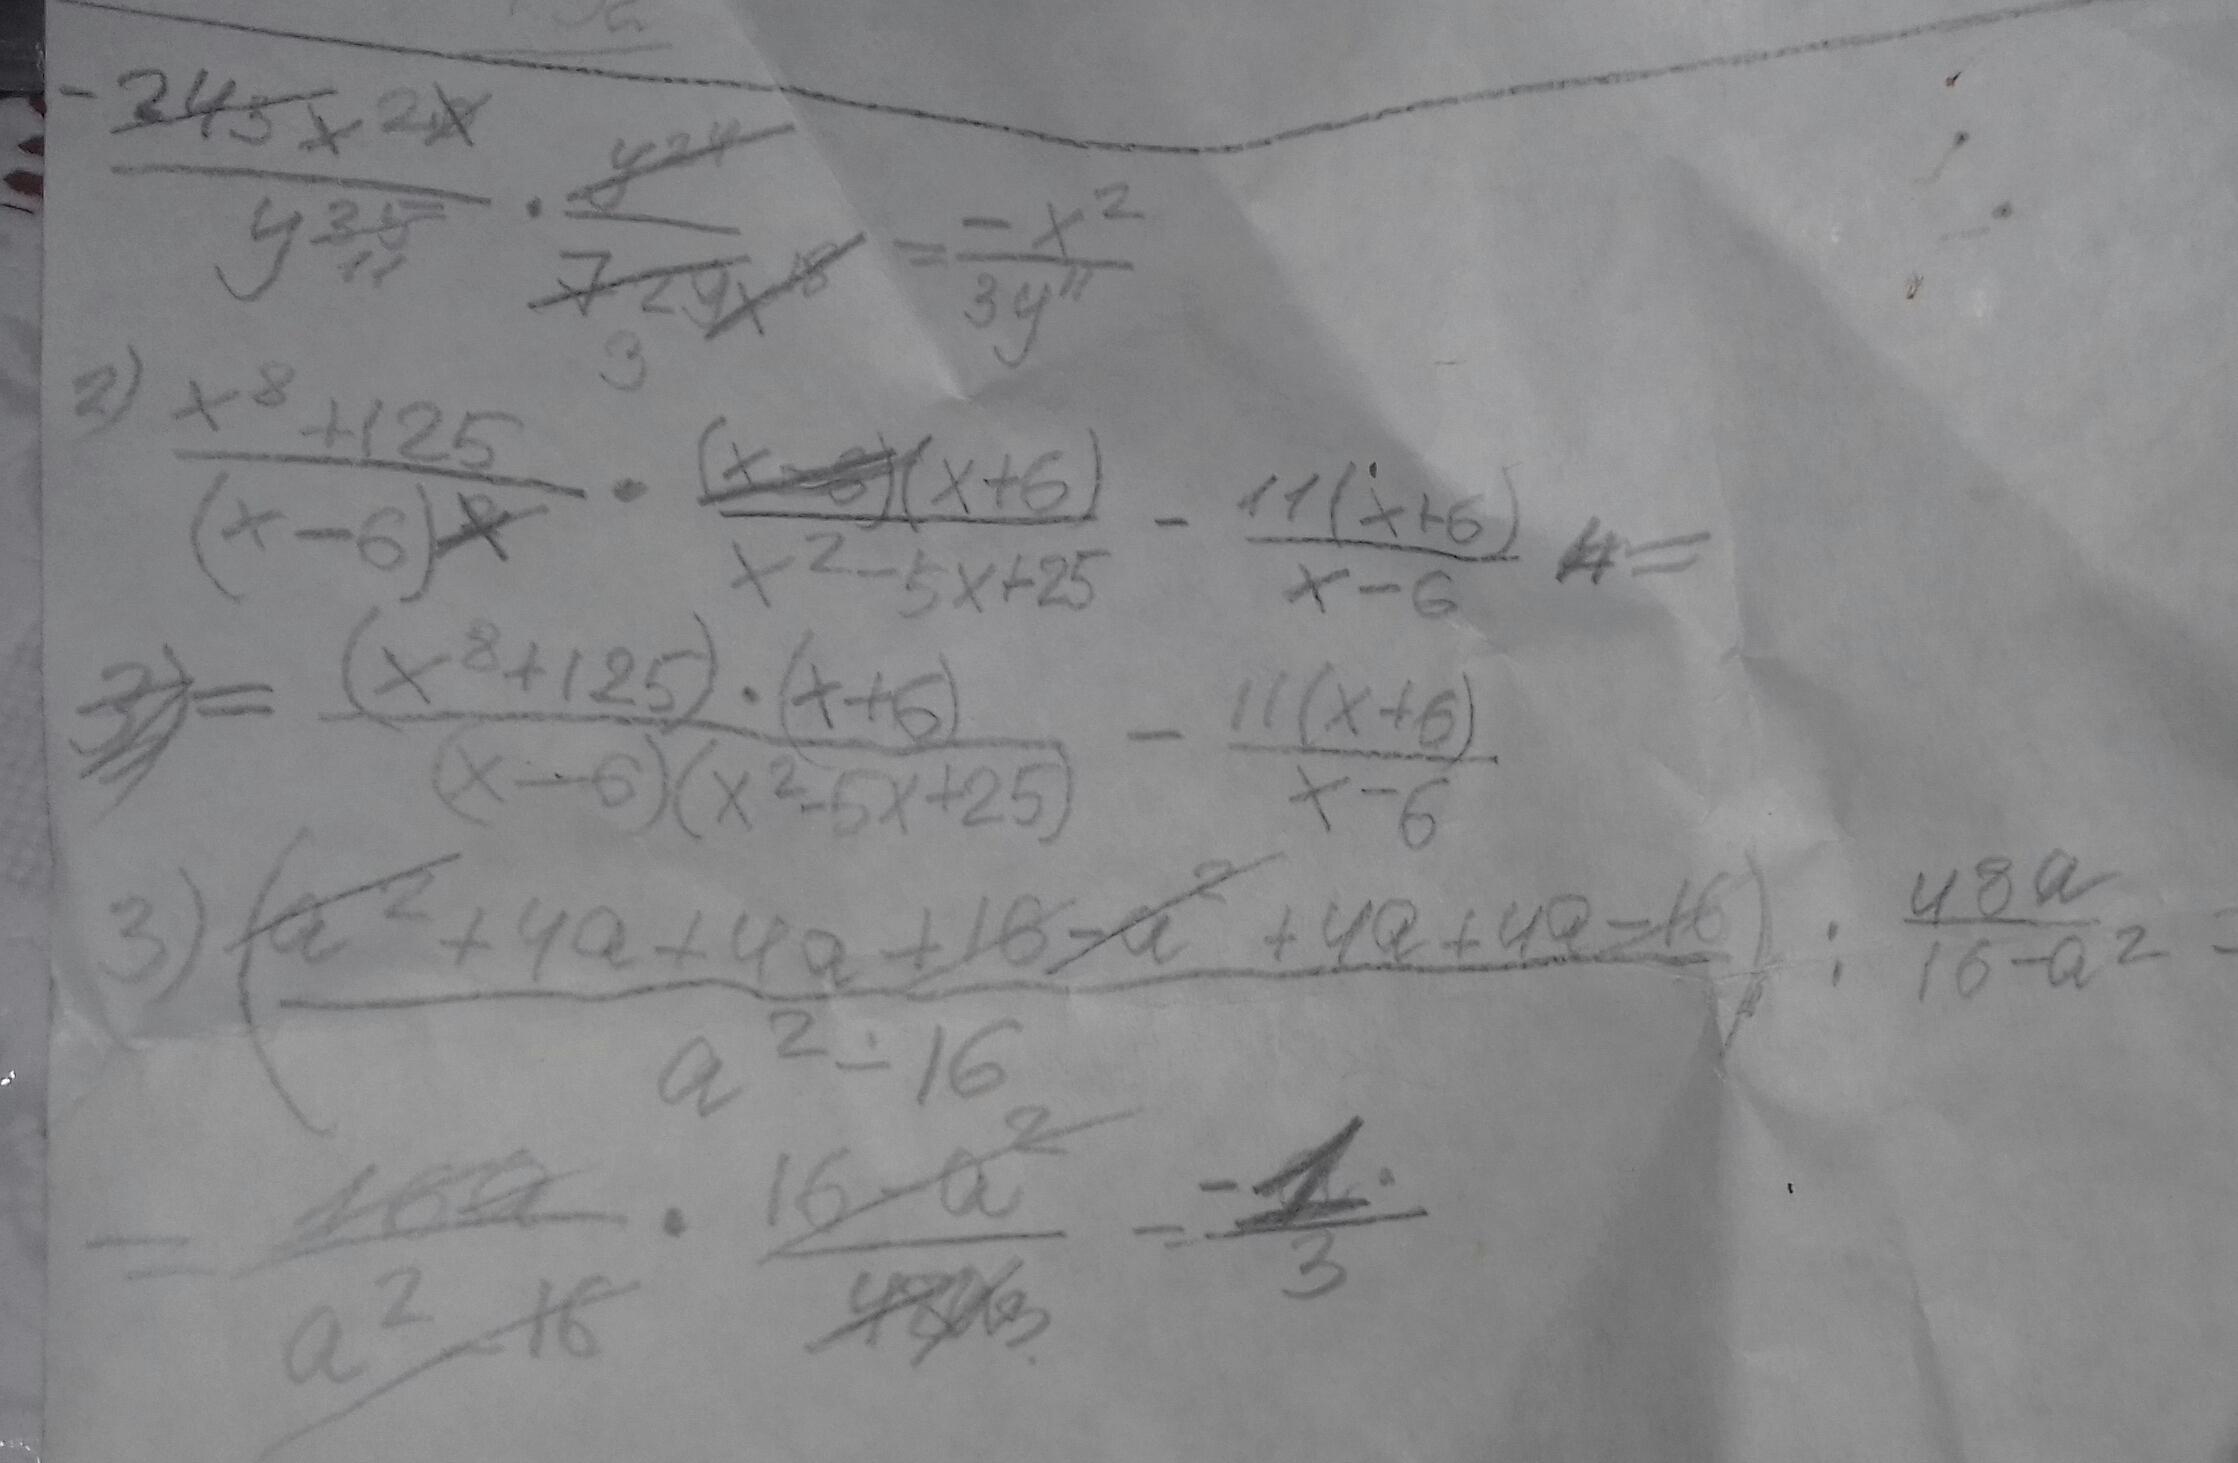 -243x^2x / y^35 11 · y^24 / 729x^18 3 = -x^2 / 3y^11
2) x^8+125 / (x-6)^2 · (x-6)(x+6) / x^2-5x+25 - 11(x+6) / x-6 =
= (x^8+125)·(x+6) / (x-6)(x^2-5x+25) - 11(x+6) / x-6
3) (a^2+4a+4a+16-a^2+4a+4a-16 / a^2-16) : 48a / 16-a^2 =
= 16a / a^2-16 · 16-a^2 / 48a 3 = -1 / 3